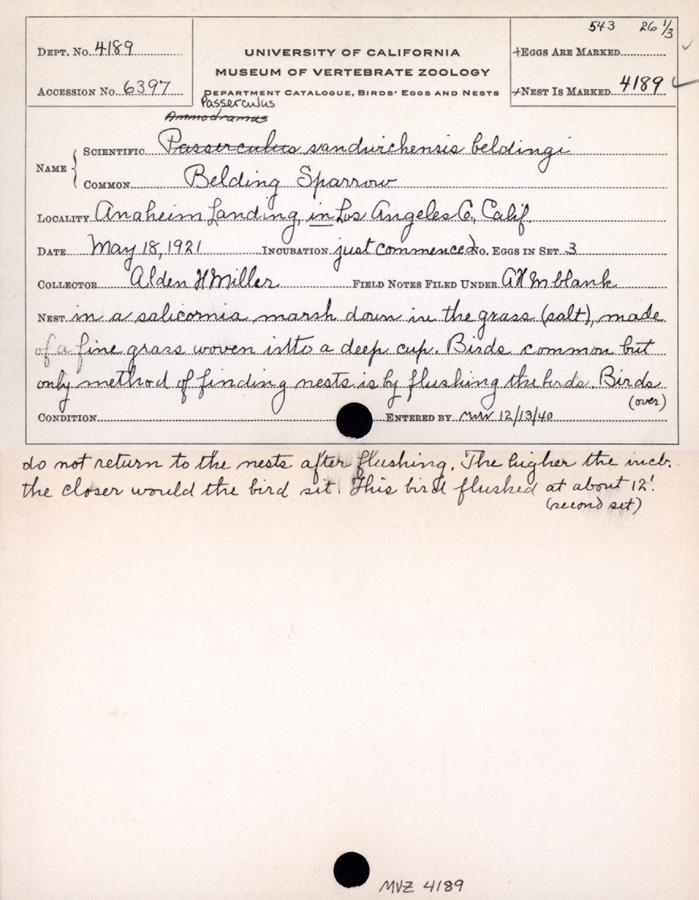 543 26 1/3
DEPT. NO. 4189
UNIVERSITY OF CALIFORNIA
+EGGS ARE MARKED
MUSEUM OF VERTEBRATE ZOOLOGY
ACCESSION NO. 6397
DEPARTMENT CATALOGUE, BIRDS' EGGS AND NESTS
+NEST IS MARKED 4189 ✓
Passerculus
Ammodramus
NAME { SCIENTIFIC Passerculus sandwichensis beldingi
COMMON Belding Sparrow
LOCALITY Anaheim Landing, in Los Angeles Co, Calif.
DATE May 18, 1921 INCUBATION just commenced NO. EGGS IN SET 3
COLLECTOR Alden H Miller FIELD NOTES FILED UNDER AHM blank
NEST in a salicornia marsh down in the grass (salt), made
of a fine grass woven into a deep cup. Birds common but
only method of finding nests is by flushing the birds. Birds
(over)
CONDITION ENTERED BY MW 12/13/40
do not return to the nests after flushing. The higher the incb.
the closer would the bird sit. This bird flushed at about 12'.
(second set)
MVZ 4189